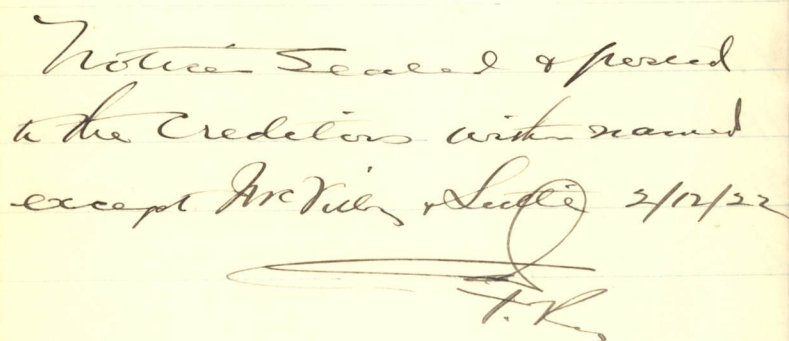 Notices sealed & posted
to the Creditors within named
except McVilly & Little 2/12/22